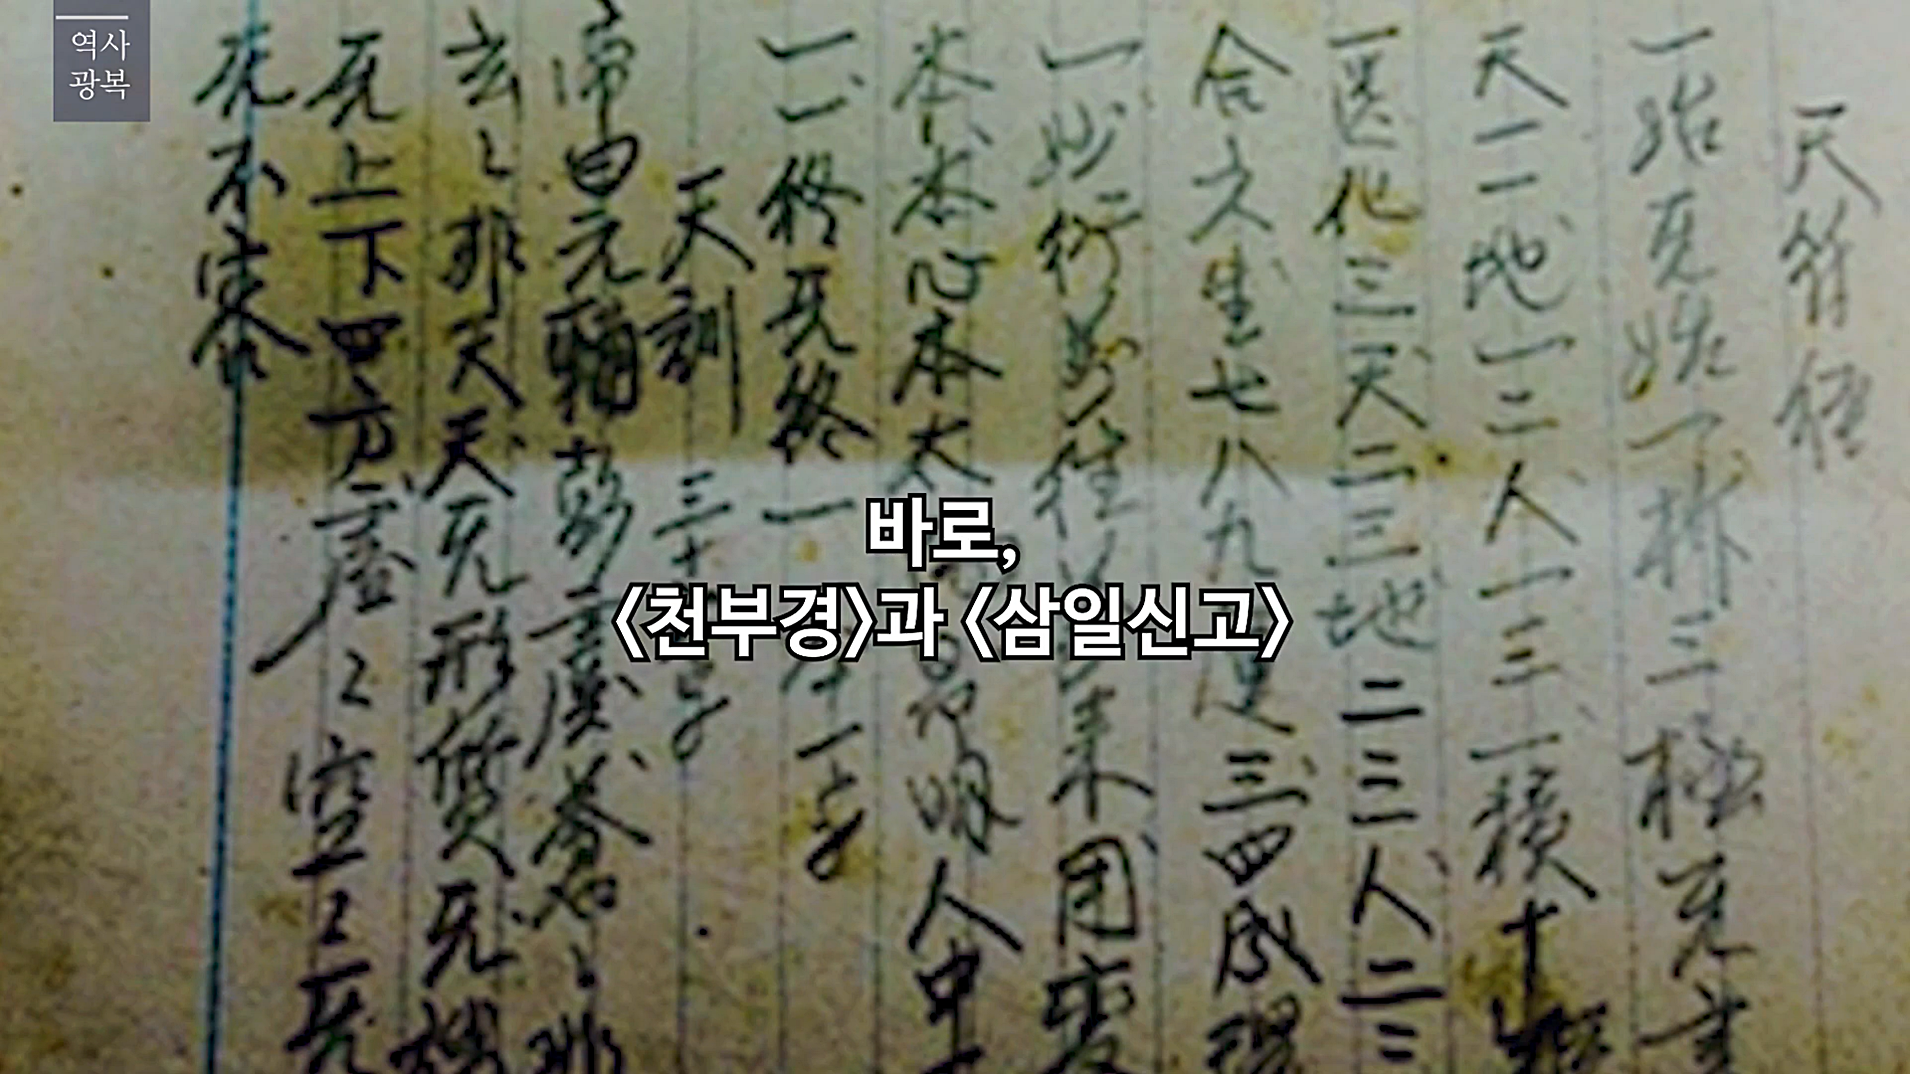 역사
광복
天符經
一始无始一析三極无
天一一地一二人一三一積十鉅
匱化三天二三地二三人二三
合六生七八九運三四成環
一妙衍萬往萬来用変
本本心本太昂明人中
一一終无終一 八十一字
天訓 三十六字
帝曰元輔彭虞蒼々非
玄々非天天无形質无端
无上下四方虛々空々无
无不容
바로,
〈천부경〉과 〈삼일신고〉